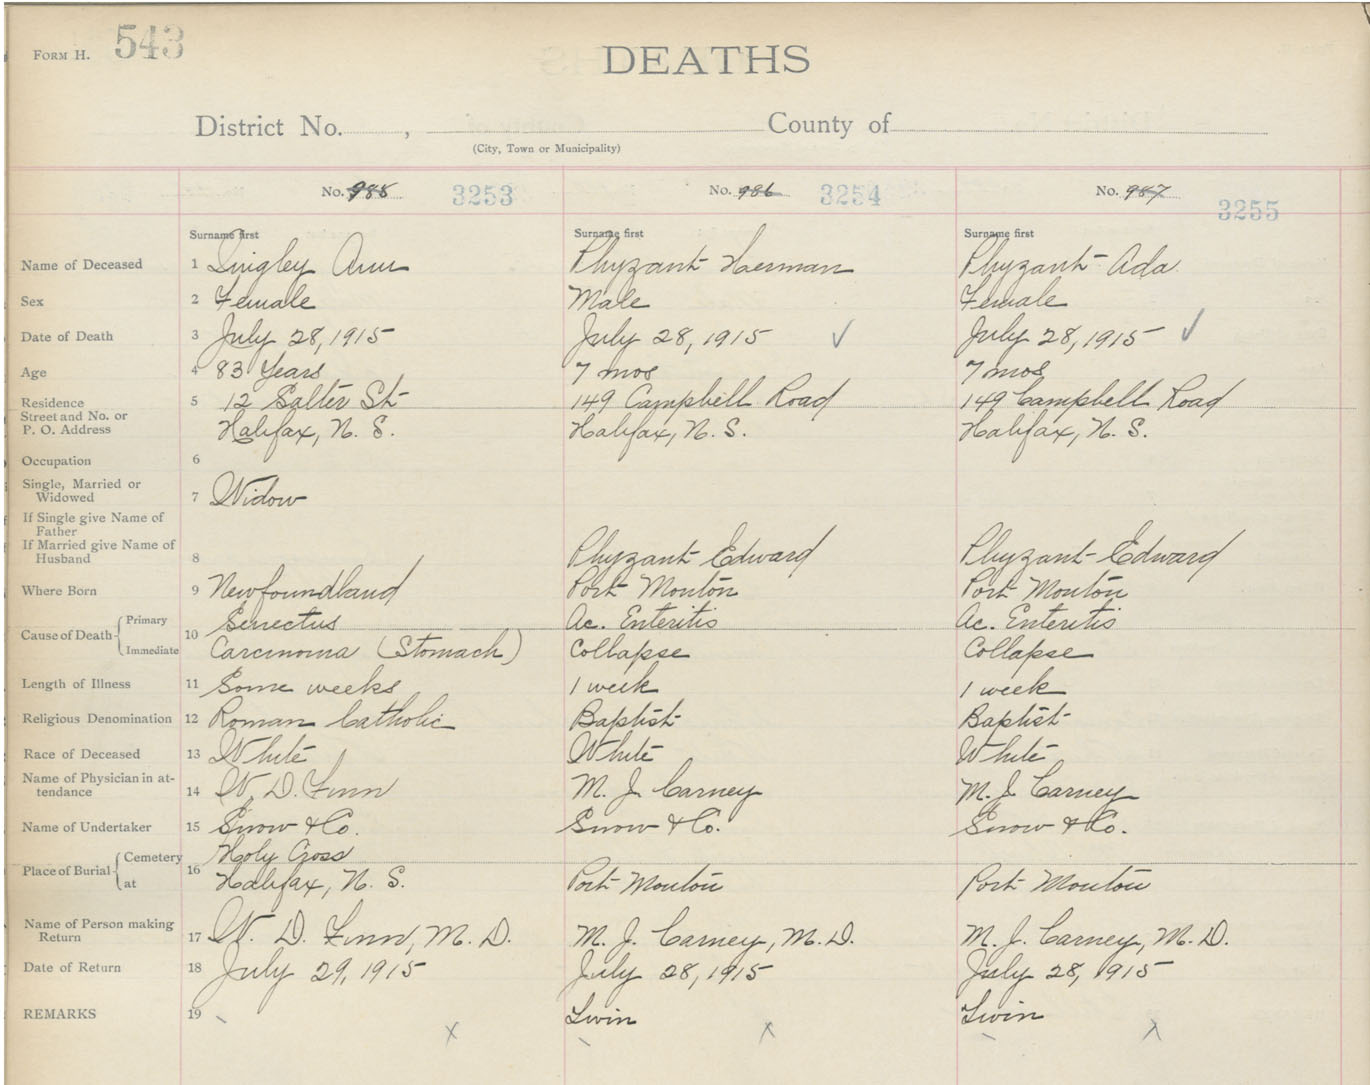 FORM H. 543
DEATHS
District No. , County of
(City, Town or Municipality)
No. 985 3253 No. 986 3254 No. 987 3255
Surname first Surname first Surname first
Name of Deceased 1 Ann Phyzant Herman Phyzant Ada
Sex 2 Female Male Female
Date of Death 3 July 28, 1915 July 28, 1915 ✓ July 28, 1915 ✓
Age 4 83 Years 7 mos 7 mos
Residence 5 12 Salter St 149 Campbell Road 149 Campbell Road
Street and No. or
P. O. Address Halifax, N. S. Halifax, N. S. Halifax, N. S.
Occupation 6
Single, Married or
Widowed 7 Widow
If Single give Name of
Father
If Married give Name of
Husband 8 Phyzant Edward Phyzant Edward
Where Born 9 Newfoundland Port Mouton Port Mouton
Cause of Death Primary 10 Senectus Ac. Enteritis Ac. Enteritis
Immediate Carcinoma (Stomach) Collapse Collapse
Length of Illness 11 Some weeks 1 week 1 week
Religious Denomination 12 Roman Catholic Baptist Baptist
Race of Deceased 13 White White White
Name of Physician in at-
tendance 14 W. D. Finn M. J. Carney M. J. Carney
Name of Undertaker 15 Snow & Co. Snow & Co. Snow & Co.
Place of Burial Cemetery 16 Holy Cross
at Halifax, N. S. Port Mouton Port Mouton
Name of Person making
Return 17 W. D. Finn, M. D. M. J. Carney, M. D. M. J. Carney, M. D.
Date of Return 18 July 29, 1915 July 28, 1915 July 28, 1915
REMARKS 19 Twin Twin
x x